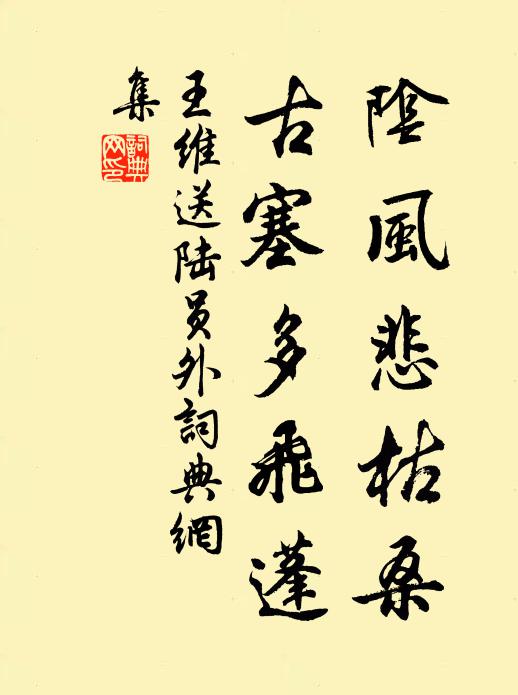 陰風悲枯桑
古塞多飛蓬
王維送陆员外詞典網
集
詞典
网印